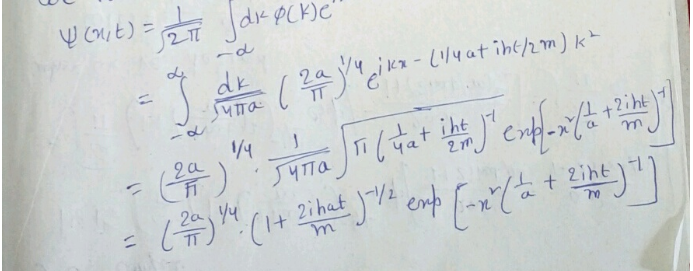 ψ(x,t) = 1/√2π ∫_{-∝} dk φ(k) e^i
= ∫_{-∝}^{∝} dk/√4πa (2a/π)^{1/4} e^{ikx - (1/4a + iht/2m) k²}
= (2a/π)^{1/4} · 1/√4πa √π (1/4a + iht/2m)^{-1} exp[-x²(1/a + 2iht/m)^{-1}]
= (2a/π)^{1/4} · (1 + 2ihat/m)^{-1/2} exp [-x²(1/a + 2iht/m)^{-1}]